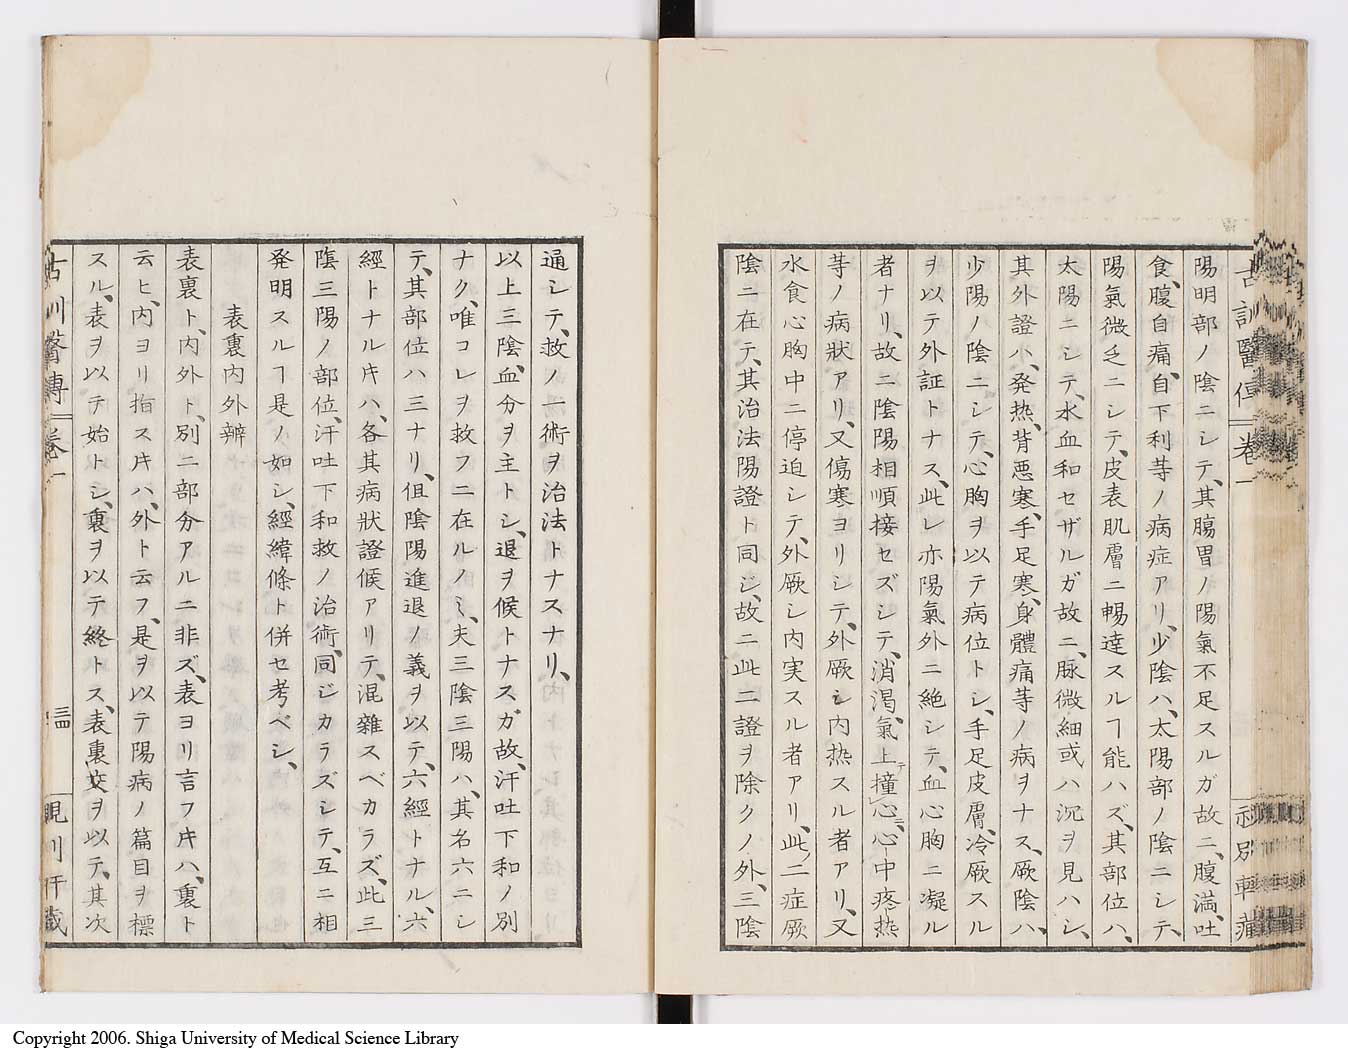 陽明部ノ陰ニシテ、其腸胃ノ陽氣不足スルガ故ニ、腹滿、吐
食、腹自痛、自下利䒭ノ病症アリ、少陰ハ、太陽部ノ陰ニシテ、
陽氣微乏ニシテ、皮表肌膚ニ暢達スルヿ能ハズ、其部位ハ、
太陽ニシテ、水血和セザルガ故ニ、脉微細或ハ沉ヲ見ハシ、
其外證ハ、発热、背悪寒、手足寒、身體痛䒭ノ病ヲナス、厥陰ハ、
少陽ノ陰ニシテ、心胸ヲ以テ病位トシ、手足皮膚、冷厥スル
ヲ以テ外証トナス、此レ亦陽氣外ニ絶シテ、血心胸ニ凝ル
者ナリ、故ニ陰陽相順接セズシテ、消渇、氣上テ撞レ心ニ、心中疼热
䒭ノ病狀アリ、又傷寒ヨリシテ、外厥シ内热スル者アリ、又
水食心胸中ニ停迫シテ、外厥シ内実スル者アリ、此ノ二症厥
陰ニ在テ、其治法陽證ト同ジ、故ニ此二證ヲ除クノ外、三陰
通シテ、救ノ一術ヲ治法トナスナリ、
以上三陰、血分ヲ主トシ、退ヲ候トナスガ故、汗吐下和ノ別
ナク、唯コレヲ救フニ在ルノミ、夫三陰三陽ハ、其名六ニシ
テ、其部位ハ三ナリ、但陰陽進退ノ義ヲ以テ、六經トナル、六
經トナル𪜈ハ、各其病狀證候アリテ、混雜スベカラズ、此三
陰三陽ノ部位、汗吐下和救ノ治術、同ジカラズシテ、互ニ相
発明スルヿ是ノ如シ、經緯條ト併セ考ベシ、
表裏内外辨
表裏ト、内外ト、別ニ部分アルニ非ズ、表ヨリ言フ𪜈ハ、裏ト
云ヒ、内ヨリ指ス𪜈ハ、外ト云フ、是ヲ以テ陽病ノ篇目ヲ標
スル、表ヲ以テ始トシ、裏ヲ以テ終トス、表裏交ヲ以テ、其次
古訓醫傳 卷一
四
Copyright 2006. Shiga University of Medical Science Library